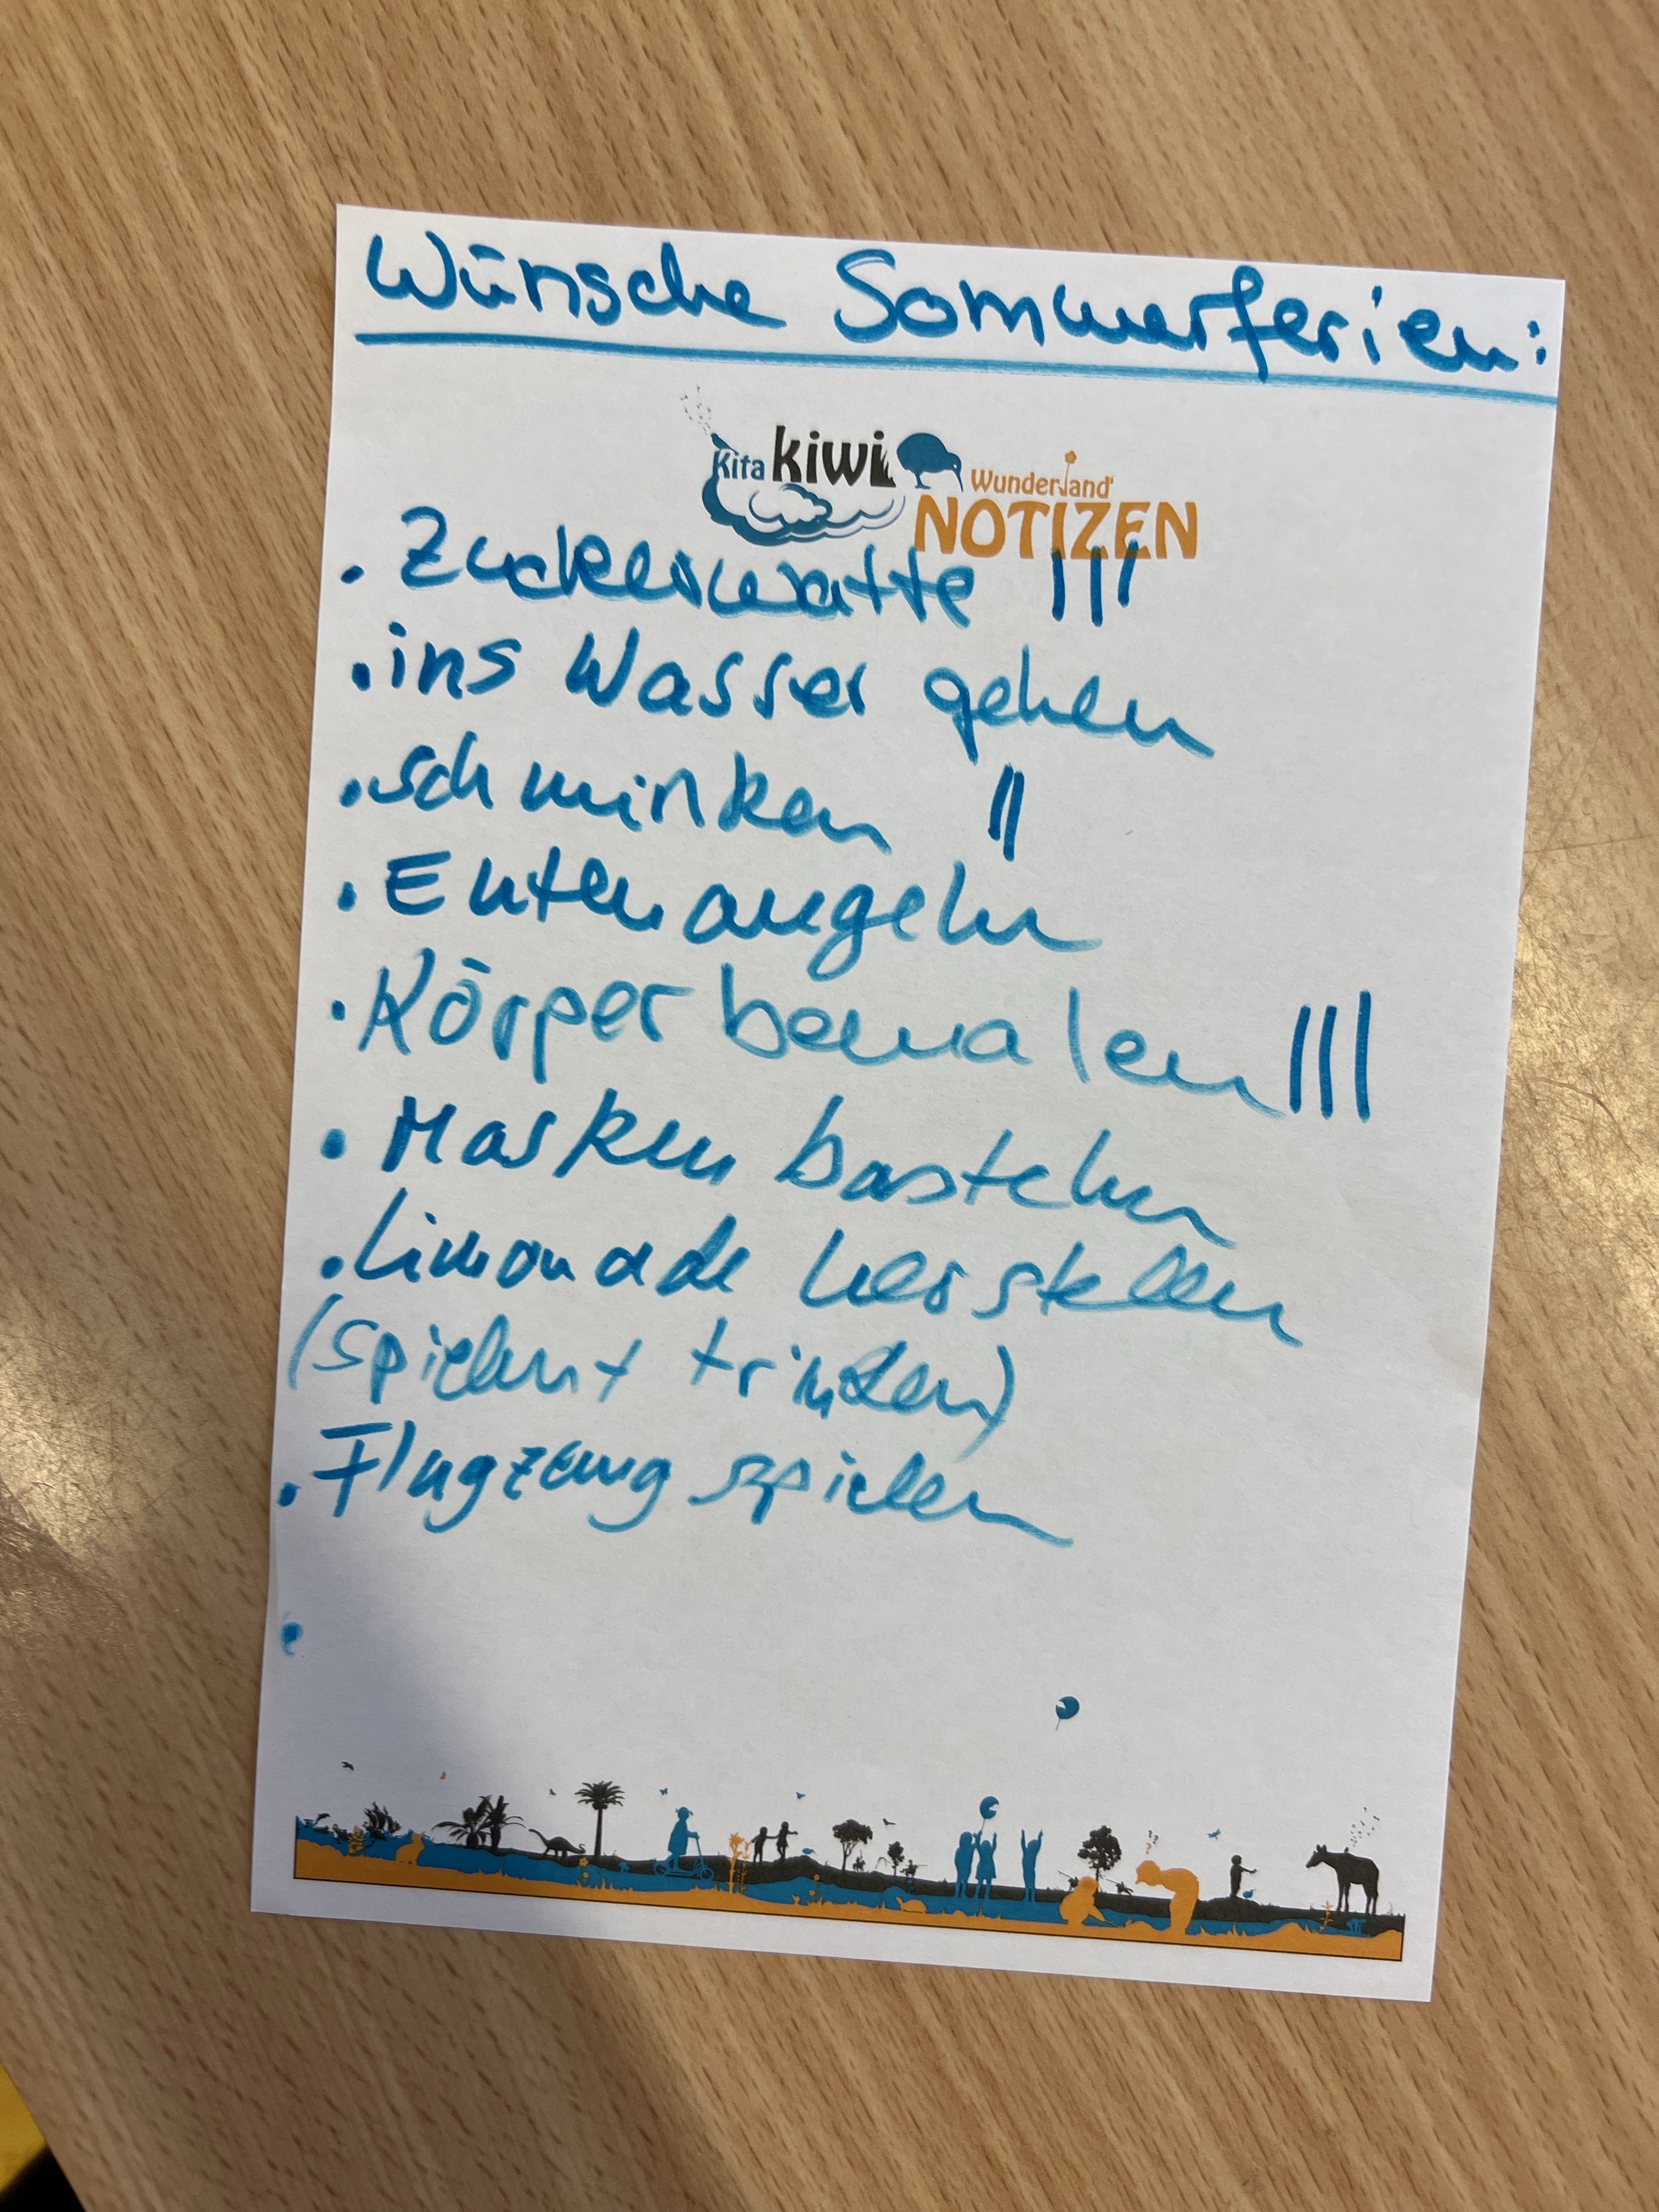 Wünsche Sommerferien:
Kita kiwi
Wunderland
NOTIZEN
. Zuckerwatte |||
. ins Wasser gehen
. schminken ||
. Enten angeln
. Körper bemalen |||
. Masken basteln
. Limonade herstellen
(spielen + trinken)
. Flugzeug spielen
.